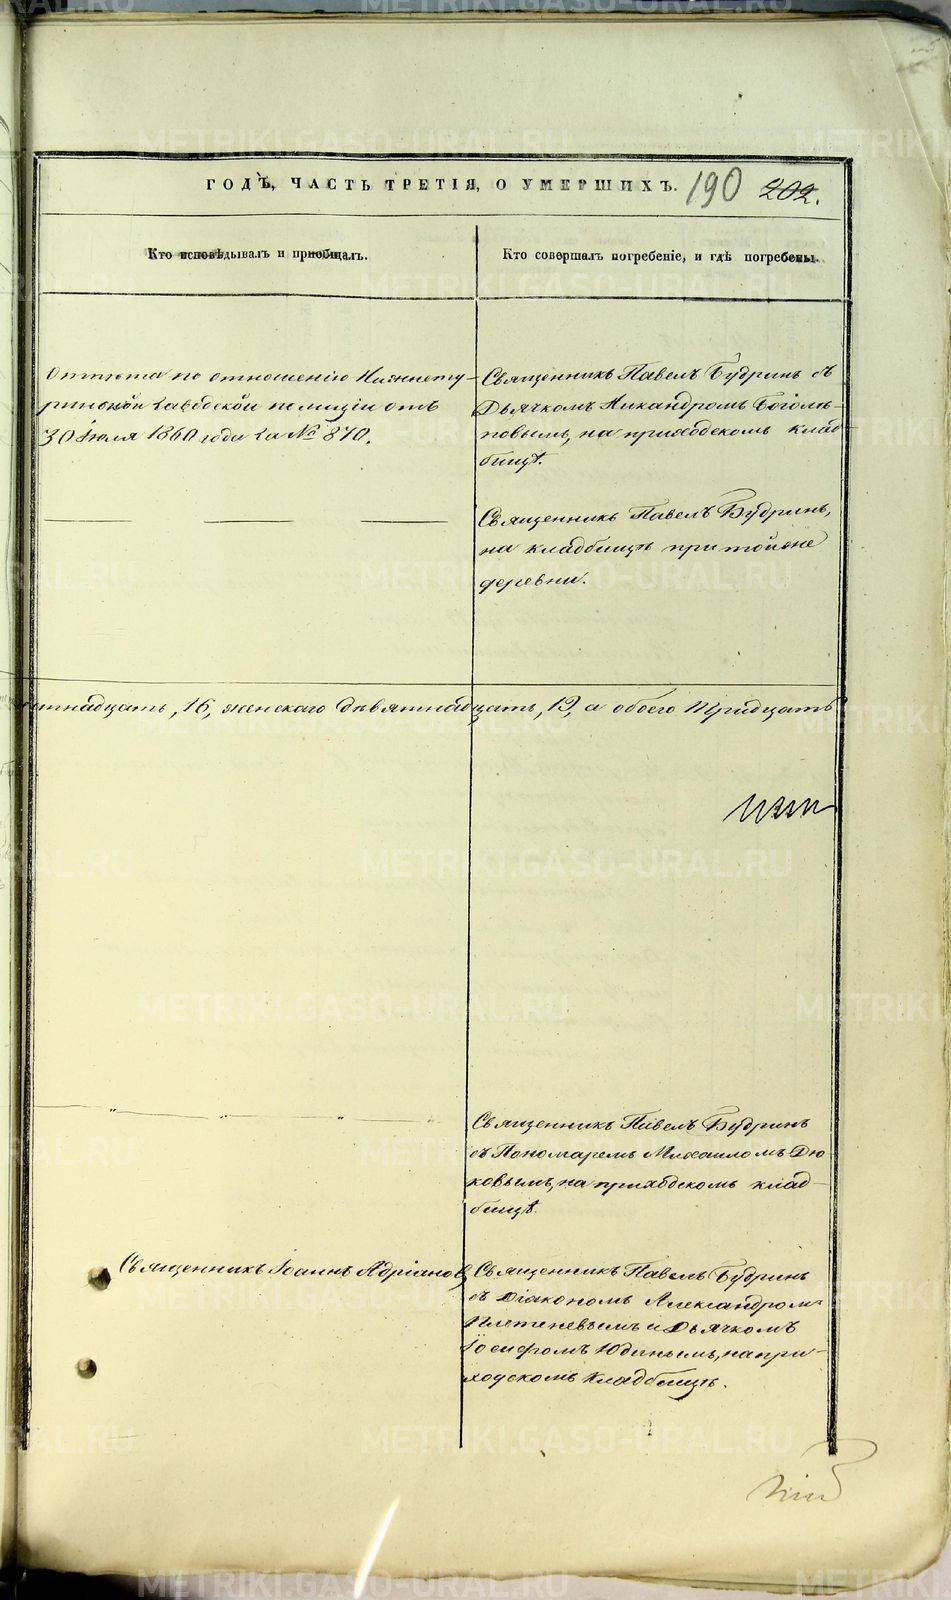 ГОДЪ, ЧАСТЬ ТРЕТІЯ, О УМЕРШИХЪ. 190 202.
Кто исповѣдывалъ и пріобщалъ.
Кто совершалъ погребеніе, и гдѣ погребены.
Отпѣта по отношенію Нижнету-
ринской Заводской полиціи отъ
30 Іюля 1860 года за № 870.
Священникъ Павелъ Будринъ съ
Дьячкомъ Никандромъ Боголѣ-
повымъ, на приходскомъ клад-
бищѣ.
Священникъ Павелъ Будринъ,
на кладбищѣ при той же
деревни.
надцать, 16, женскаго девятнадцать, 19, а обоего тридцать
Священникъ Павелъ Будринъ
съ Пономаремъ Михаиломъ Дю-
ковымъ, на приходскомъ клад-
бищѣ.
Священникъ Іоаннъ Адріановъ
Священникъ Павелъ Будринъ
съ Діакономъ Александромъ
Плетеневымъ и Дьячкомъ
Іосифомъ Юдинымъ, на при-
ходскомъ кладбищѣ.
METRIKI.GASO-URAL.RU